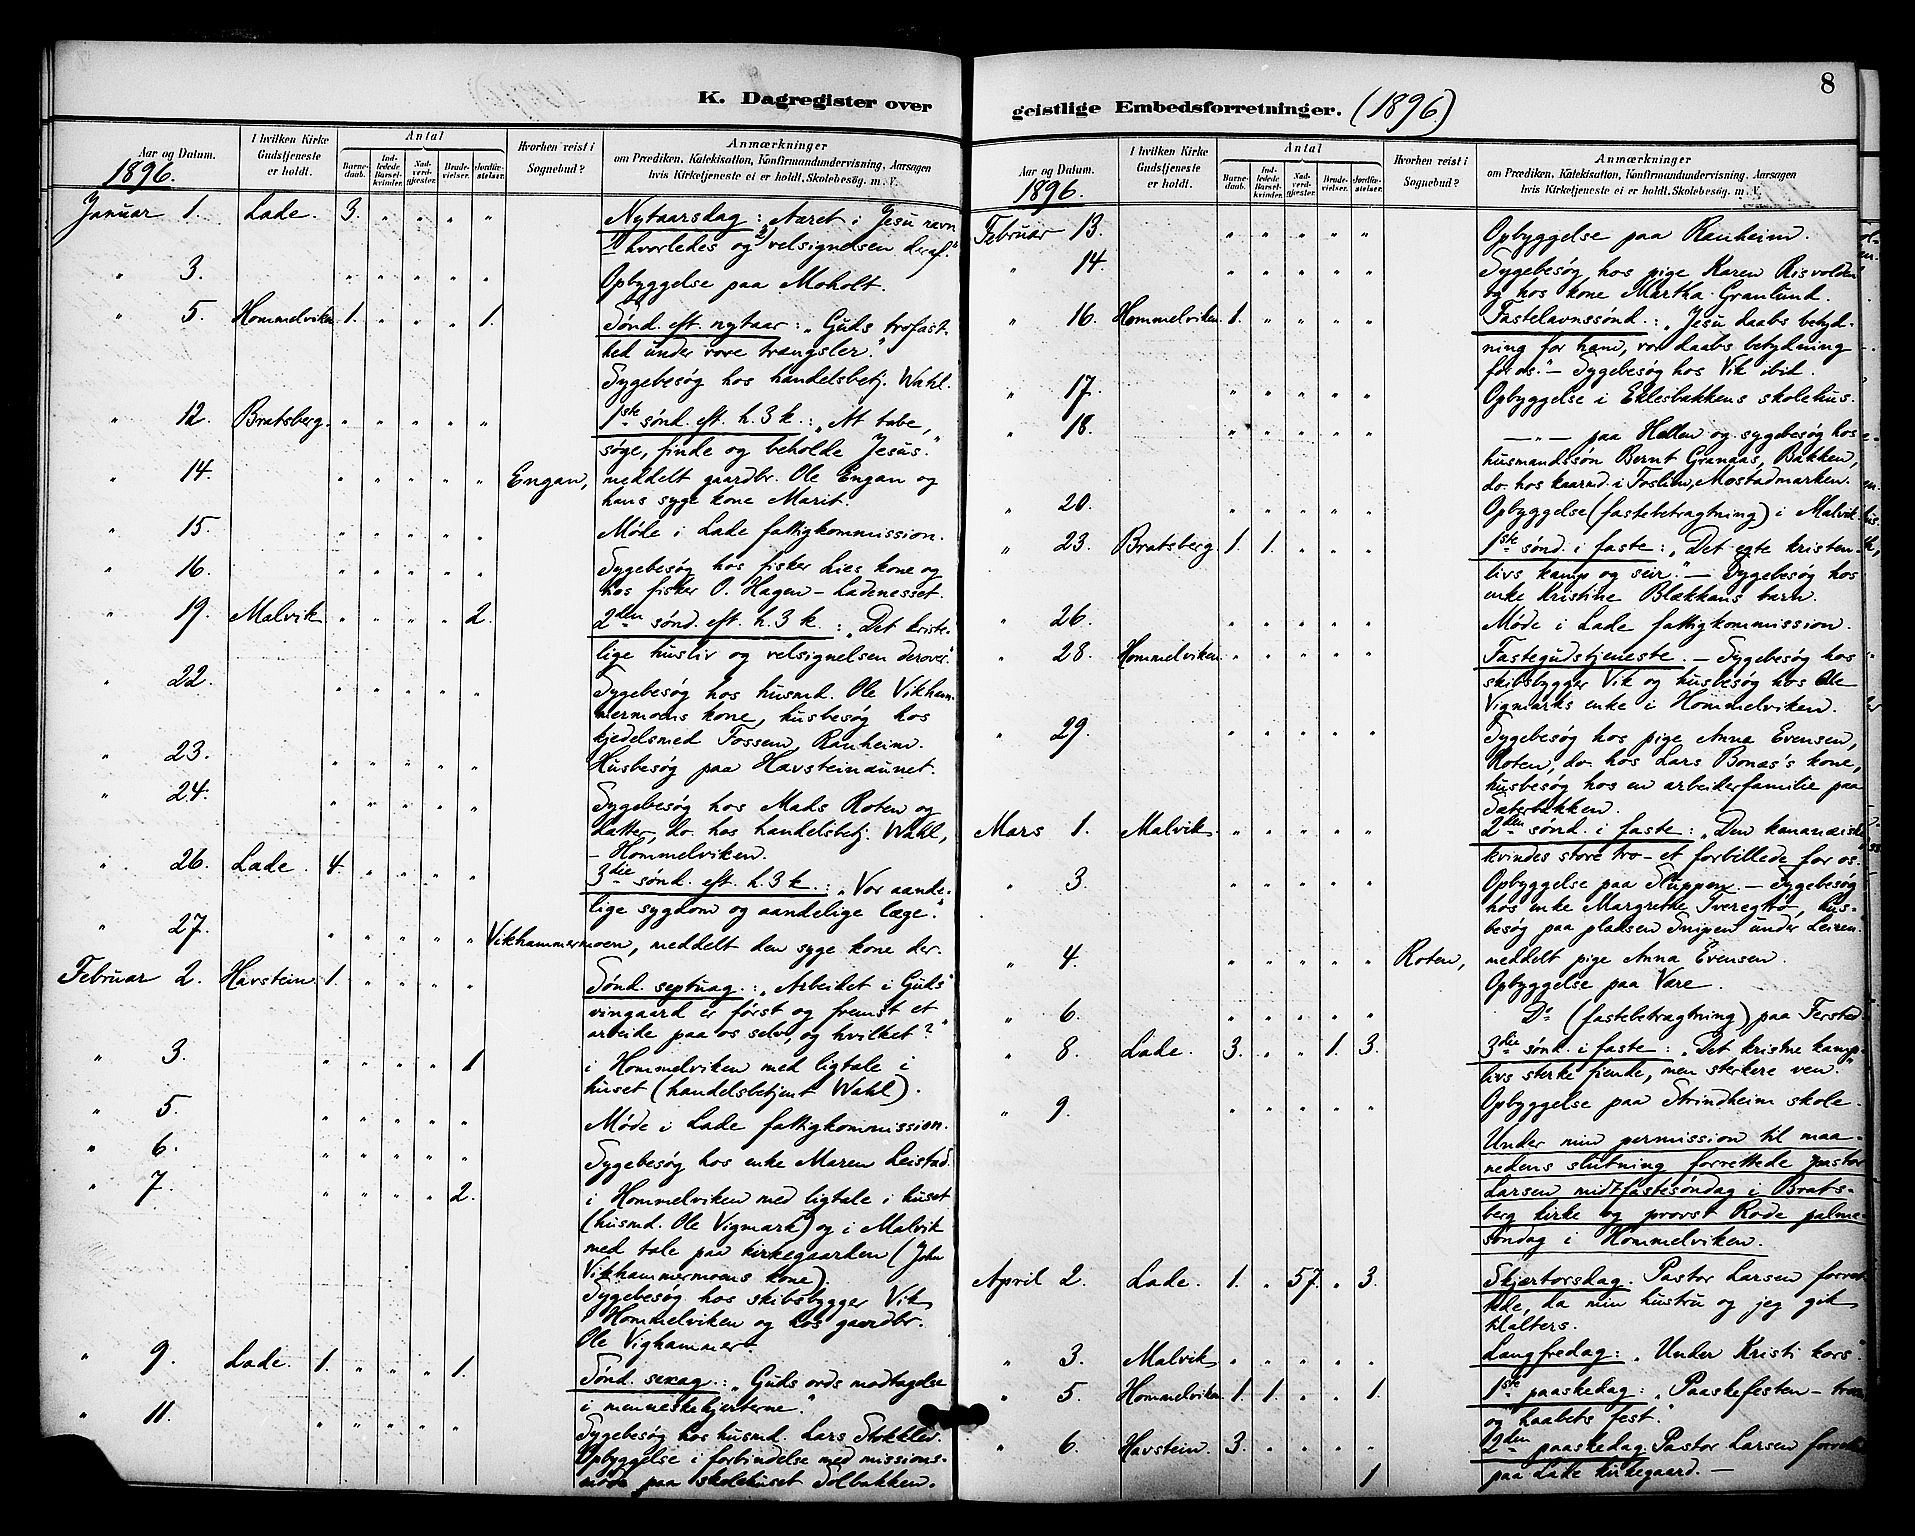 K. Dagregister over
Aar og Datum.
1896.
I hvilken Kirke Gudstjeneste er holdt.
Antal
Barnedaab.
Indledede Barselkvinder.
Nadverdgjester.
Brudevielser.
Jordfæstelser.
Hvorhen reist i Sognebud?
Anmærkninger
om Prædiken, Katekisation, Konfirmandundervisning, Aarsagen
hvis Kirketjeneste ei er holdt, Skolebesøg. m. V.
Januar 1. Lade. 3. " " " " Nytaarsdag: "Aaret i Jesu navn
1) hvorledes og 2) velsignelsen deraf."
" 3. " " " " " Opbyggelse paa Moholt.
" 5. Hommelviken 1. " " " 1. Sønd. eft. nytaar: "Guds trofast-
hed under vore trængsler."
Sygebesøg hos handelsbetj. Wahl.
" 12. Bratsberg. " " " " " 1ste sønd. eft. h. 3 k.: "At tabe,
søge, finde og beholde Jesus."
" 14. " " " " " Engan, meddelt gaardbr. Ole Engan og
hans syge kone Marit.
" 15. " " " " " Møde i Lade fattigkommission.
" 16. " " " " " Sygebesøg hos fisker Lies kone og
hos fisker O. Hagen - Ladenesset.
" 19. Malvik " " " " 2. 2den sønd. eft. h. 3 k.: "Det kriste-
lige husliv og velsignelsen derover."
" 22. " " " " " Sygebesøg hos husmd. Ole Vikham-
mermoens kone, husbesøg hos
kjedelsmed Fossem, Ranheim.
" 23. " " " " " Husbesøg paa Havsteinaunet.
" 24. " " " " " Sygebesøg hos Mads Roten og
datter, do. hos handelsbetj. Wahl,
- Hommelviken.
" 26. Lade. 4. " " " " 3die sønd. eft. h. 3 k.: "Vor aande-
lige sygdom og aandelige læge."
" 27. " " " " " Vikhammermoen, meddelt den syge kone der.
Februar 2. Havstein. 1. " " " " Sønd. septuag.: "Arbeidet i Guds
vingaard er først og fremst et
arbeide paa os selv, og hvilket?"
" 3. " " " " 1 i Hommelviken med ligtale i
huset (handelsbetjent Wahl).
" 5. " " " " " Møde i Lade fattigkommission.
" 6. " " " " " Sygebesøg hos enke Maren Leistad.
" 7. " " " " 2. i Hommelviken med ligtale i huset
(husmd. Ole Vigmark) og i Malvik
med tale paa kirkegaarden (John
Vikhammermoens kone).
Sygebesøg hos skibsbygger Vik
i Hommelviken og hos gaardbr.
Ole Vighammer.
" 9. Lade. 1. " " " 1. Sønd. sexag.: "Guds ords modtagelse
i menneskehjerterne."
" 11. " " " " " Sygebesøg hos husmd. Lars Stokklev.
Opbyggelse i forbindelse med missions-
møde paa skolehuset Solbakken.
geistlige Embedsforretninger. (1896.)
8
Aar og Datum.
1896.
I hvilken Kirke Gudstjeneste er holdt.
Antal
Barnedaab.
Indledede Barselkvinder.
Nadverdgjester.
Brudevielser.
Jordfæstelser.
Hvorhen reist i Sognebud?
Anmærkninger
om Prædiken, Katekisation, Konfirmandundervisning, Aarsagen
hvis Kirketjeneste ei er holdt, Skolebesøg. m. V.
Februar 13. " " " " " Opbyggelse paa Ranheim.
" 14. " " " " " Sygebesøg hos pige Karen Risvolden
og hos kone Martha Granlund.
" 16. Hommelviken 1. " " " " Fastelavnssønd.: "Jesu daabs betyd-
ning for ham, vor daabs betydning
for os." - Sygebesøg hos Vik ibid.
" 17. " " " " " Opbyggelse i Eklesbakkens skolehus.
" 18. " " " " " — " — paa Hellem og sygebesøg hos
husmandssøn Bernt Granaas, Bakken,
do. hos kaarmd. i Foslien, Mostadmarken.
" 20. " " " " " Opbyggelse (fastebetragtning) i Malvik
" 23. Bratsberg. 1. 1. " " " 1ste sønd. i faste: "Det egte kristen-
livs kamp og seir." - Sygebesøg hos
enke Kristine Blækkans barn.
" 26. " " " " " Møde i Lade fattigkommission.
" 28. Hommelviken. " " " " " Fastegudstjeneste. - Sygebesøg hos
skibsbygger Vik og husbesøg hos Ole
Vigmarks enke i Hommelviken.
" 29. " " " " " Sygebesøg hos pige Anna Evensen,
Roten, do. hos Lars Bonæs's kone,
husbesøg hos en arbeiderfamilie paa
Sæterbakken.
Mars 1. Malvik. " " " " " 2den sønd. i faste: "Den kananæiske
kvindes store tro - et forbillede for os.
" 3. " " " " " Opbyggelse paa Sluppen. - Sygebesøg
hos enke Margrethe Tveregtø, hus-
besøg paa pladsen Snipen under Leiren.
" 4. " " " " " Roten, meddelt pige Anna Evensen.
Opbyggelse paa Være.
" 6. " " " " " Do (fastebetragtning) paa Fersted
" 8. Lade. 3. " " 1. 3. 3die sønd. i faste: "Det kristne kamp-
livs sterke fiende, men sterkere ven."
" 9. " " " " " Opbyggelse paa Strindheim skole.
Under min permission til maa-
nedens slutning forrettede pastor
Larsen midtfastesøndag i Brats-
berg kirke og provst Rode palme-
søndag i Hommelviken.
April 2. Lade. 1. " 57. " 3. Skjertorsdag. Pastor Larsen forret-
tede, da min hustru og jeg gik
til alters.
" 3. Malvik " " " " " Langfredag: "Under Kristi kors".
" 5. Hommelviken 1. 1. " " 1. 1ste paaskedag: "Paaskefesten - troens
og haabets fest."
" 6. Havstein. 3. " " " " 2den paaskedag. Pastor Larsen forrett.
1 paa Lade kirkegaard. -